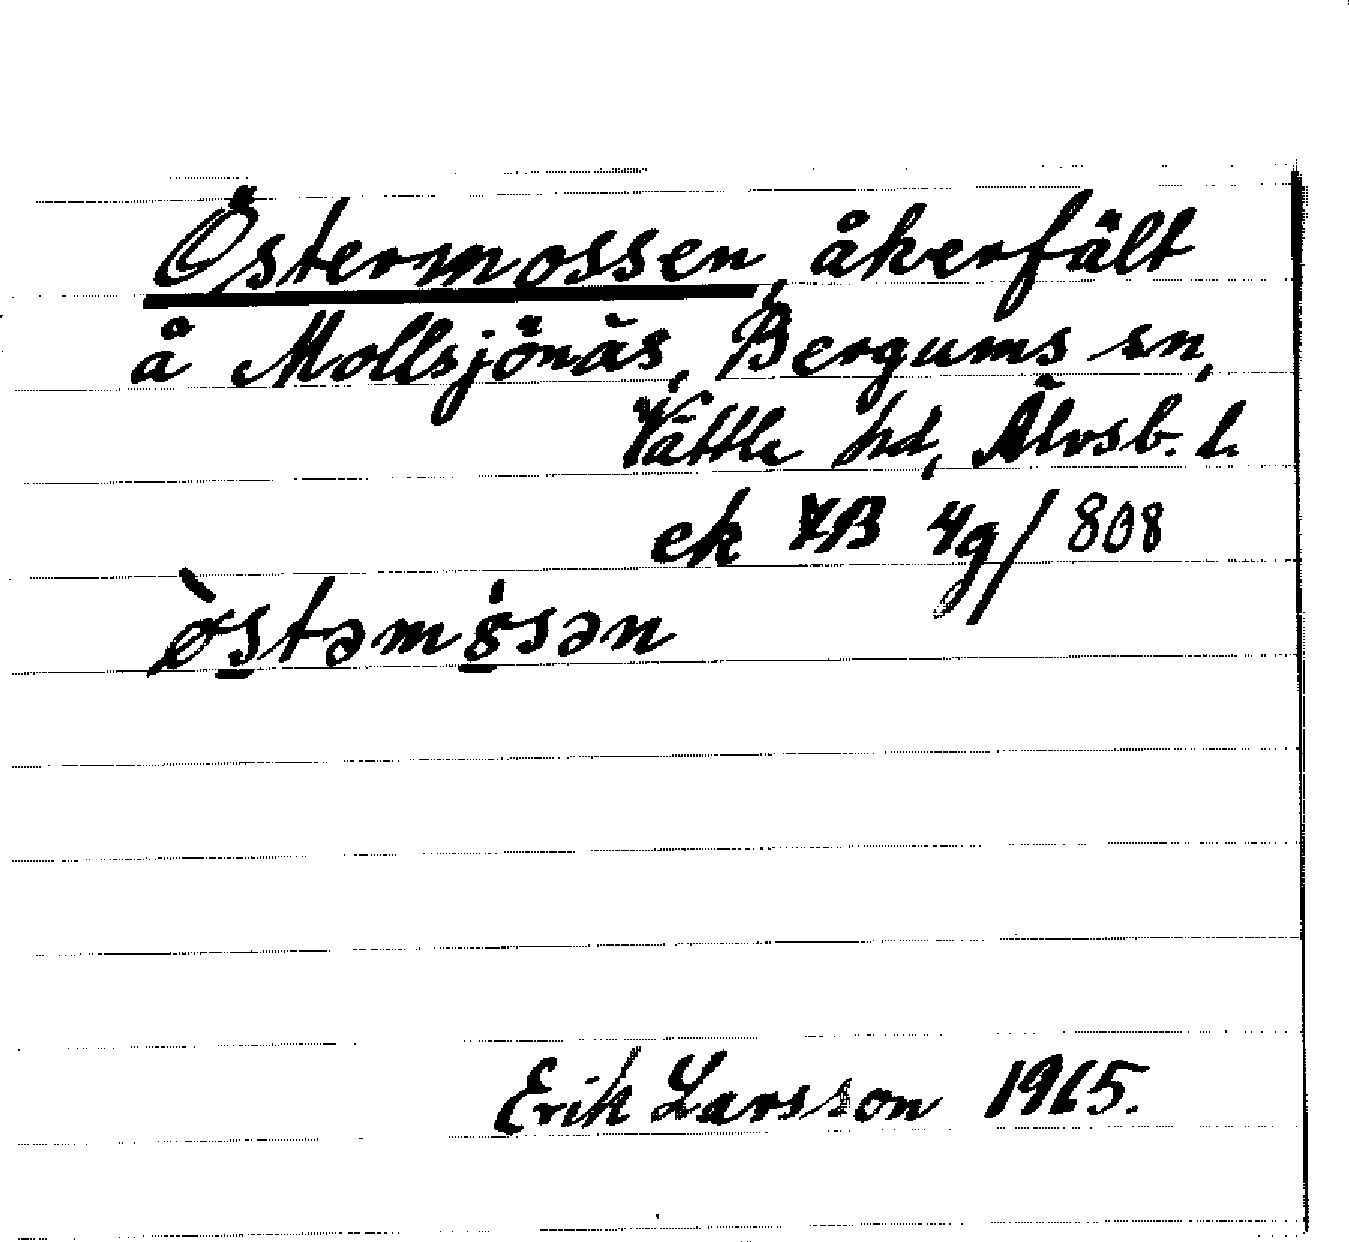 Östermossen, åkerfält
å Mollsjönäs, Bergums sn,
Vättle hd, Älvsb. l.
ek 7B 4g/808
ø̀stəmɔ́sən
Erik Larsson 1965.